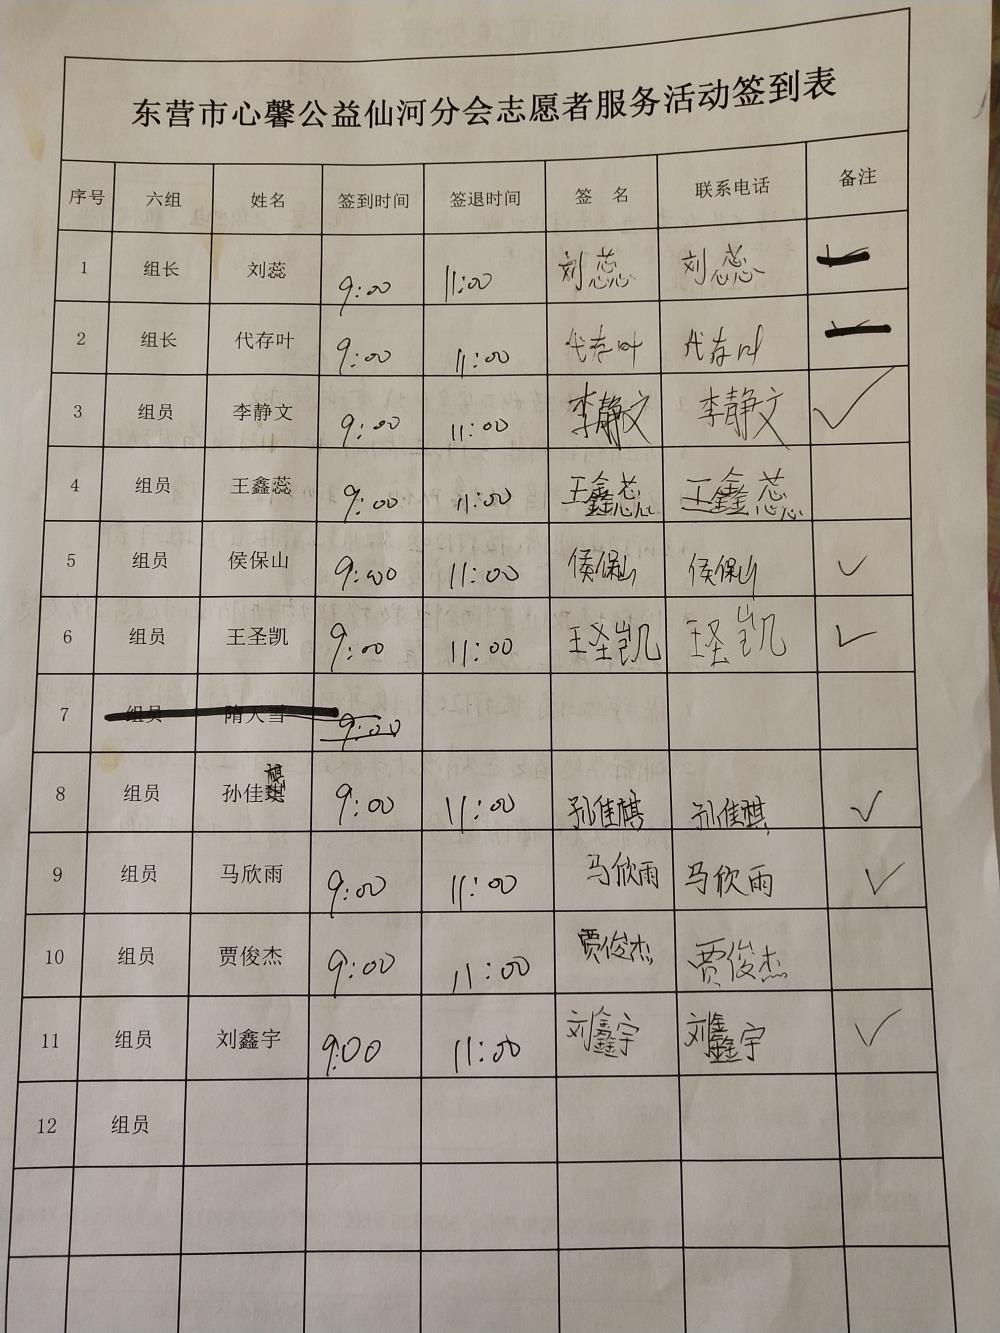 东营市心馨公益仙河分会志愿者服务活动签到表
序号 六组 姓名 签到时间 签退时间 签 名 联系电话 备注
1 组长 刘蕊 9:00 11:00 刘蕊 刘蕊
2 组长 代存叶 9:00 11:00 代存叶 代存叶
3 组员 李静文 9:00 11:00 李静文 李静文 ✓
4 组员 王鑫蕊 9:00 11:00 王鑫蕊 王鑫蕊
5 组员 侯保山 9:00 11:00 侯保山 侯保山 ✓
6 组员 王圣凯 9:00 11:00 王圣凯 王圣凯 ✓
7 组员 隋天雪 9:00
8 组员 孙佳祺 9:00 11:00 孙佳祺 孙佳祺 ✓
9 组员 马欣雨 9:00 11:00 马欣雨 马欣雨 ✓
10 组员 贾俊杰 9:00 11:00 贾俊杰 贾俊杰
11 组员 刘鑫宇 9:00 11:00 刘鑫宇 刘鑫宇 ✓
12 组员